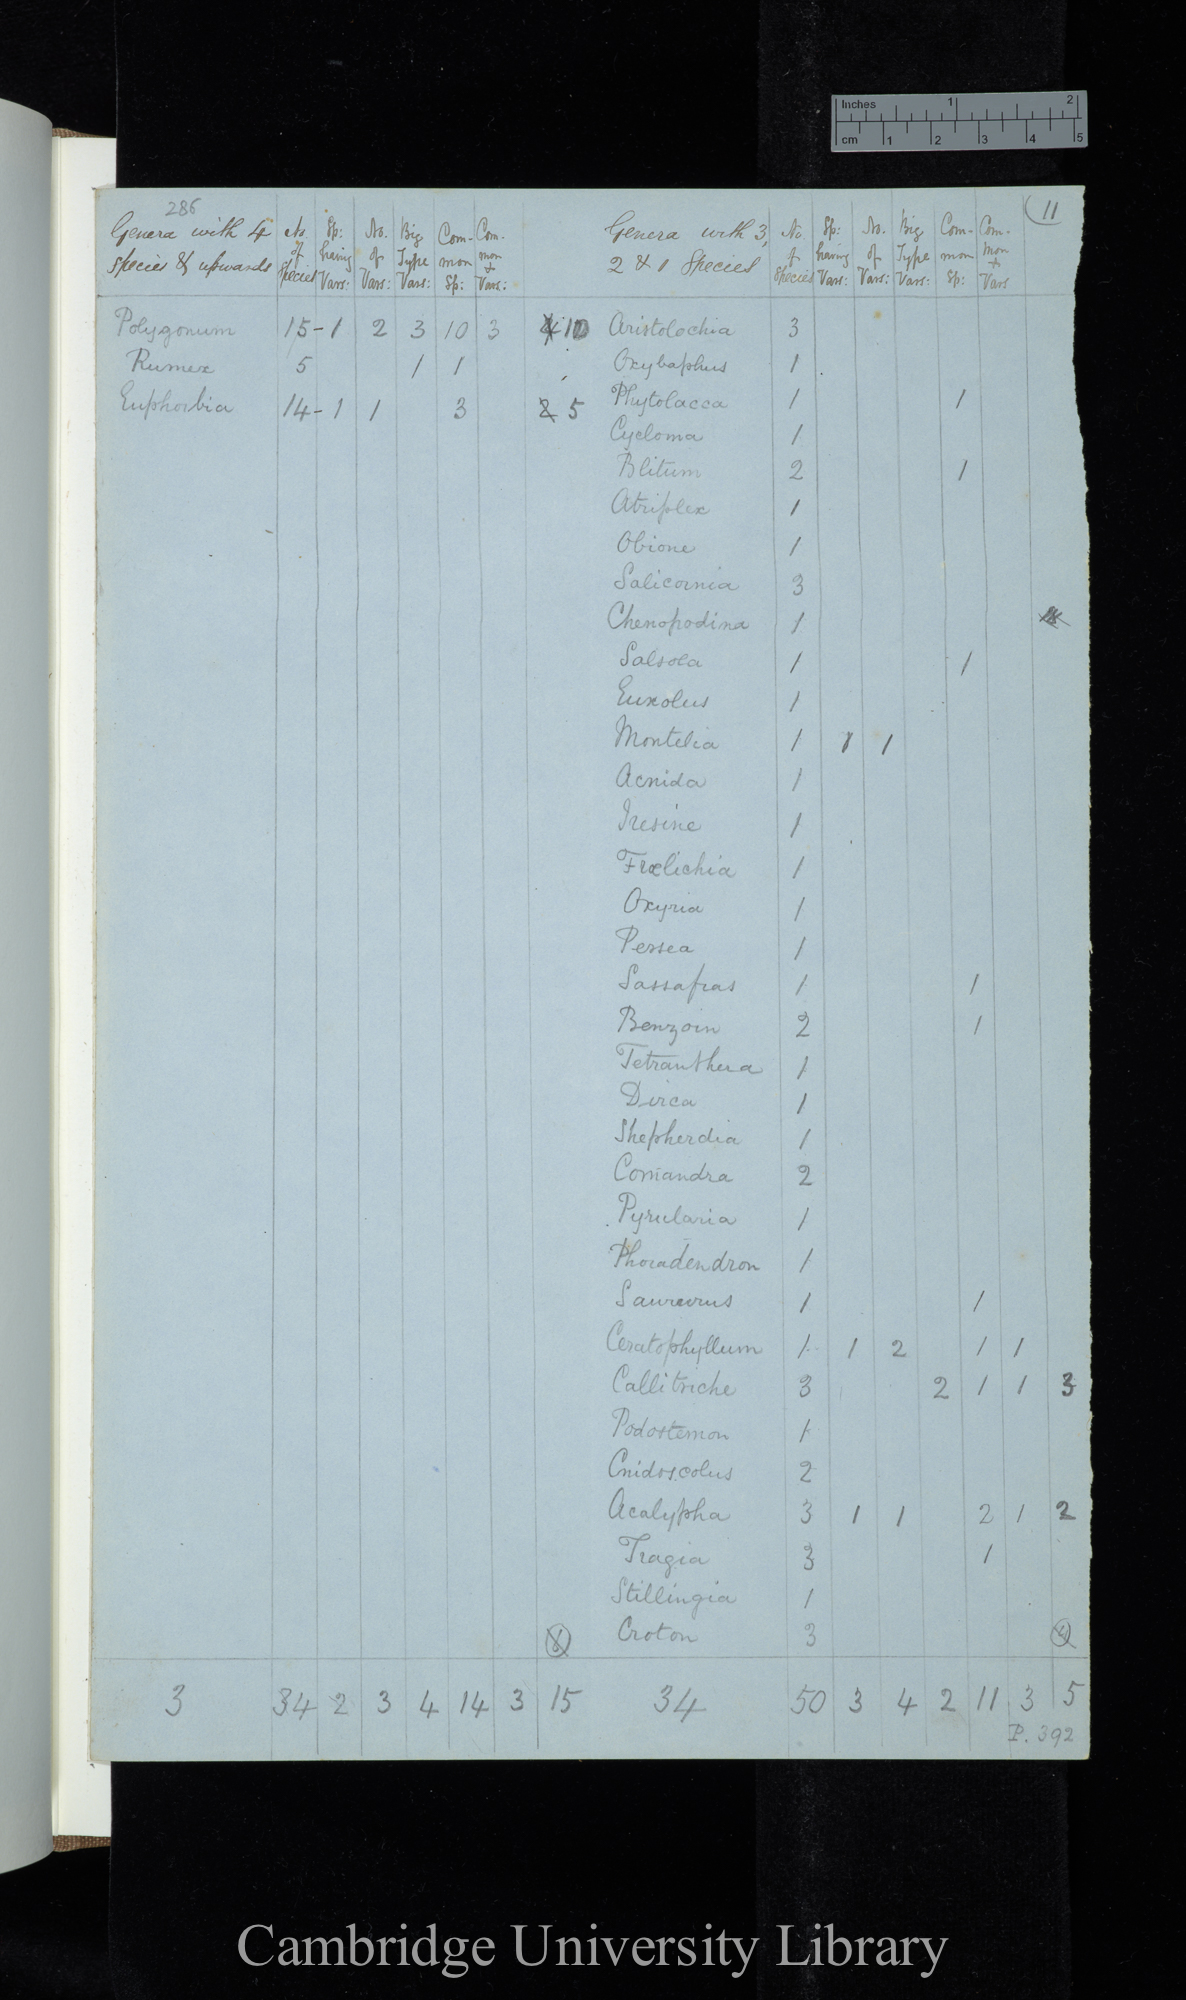 Inches 1 2
cm 1 2 3 4 5
286
11
Genera with 4 species & upwards | No. of Species | Sp: having Vars: | No. of Vars: | Big Type Vars: | Common Sp: | Common + Vars: | Genera with 3, 2 & 1 Species | No. of Species | Sp: having Vars: | No. of Vars: | Big Type Vars: | Common Sp: | Common + Vars
Polygonum 15-1 2 3 10 3 4 10 Aristolochia 3
Rumex 5 1 1 Oxybaphus 1
Euphorbia 14-1 1 3 2 5 Phytolacca 1 1
Cycloma 1
Blitum 2 1
Atriplex 1
Obione 1
Salicornia 3
Chenopodina 1
Salsola 1 1
Euxolus 1
Montelia 1 1 1
Acnida 1
Iresine 1
Frœlichia 1
Oxyria 1
Persea 1
Sassafras 1 1
Benzoin 2 1
Tetranthera 1
Dirca 1
Shepherdia 1
Comandra 2
Pyrularia 1
Phoradendron 1
Saururus 1 1
Ceratophyllum 1 1 2 1 1
Callitriche 3 2 1 1 3
Podostemon 1
Cnidoscolus 2
Acalypha 3 1 1 2 1 2
Tragia 3 1
Stillingia 1
Croton 3
3 34 2 3 4 14 3 15 34 50 3 4 2 11 3 5
P. 392
Cambridge University Library